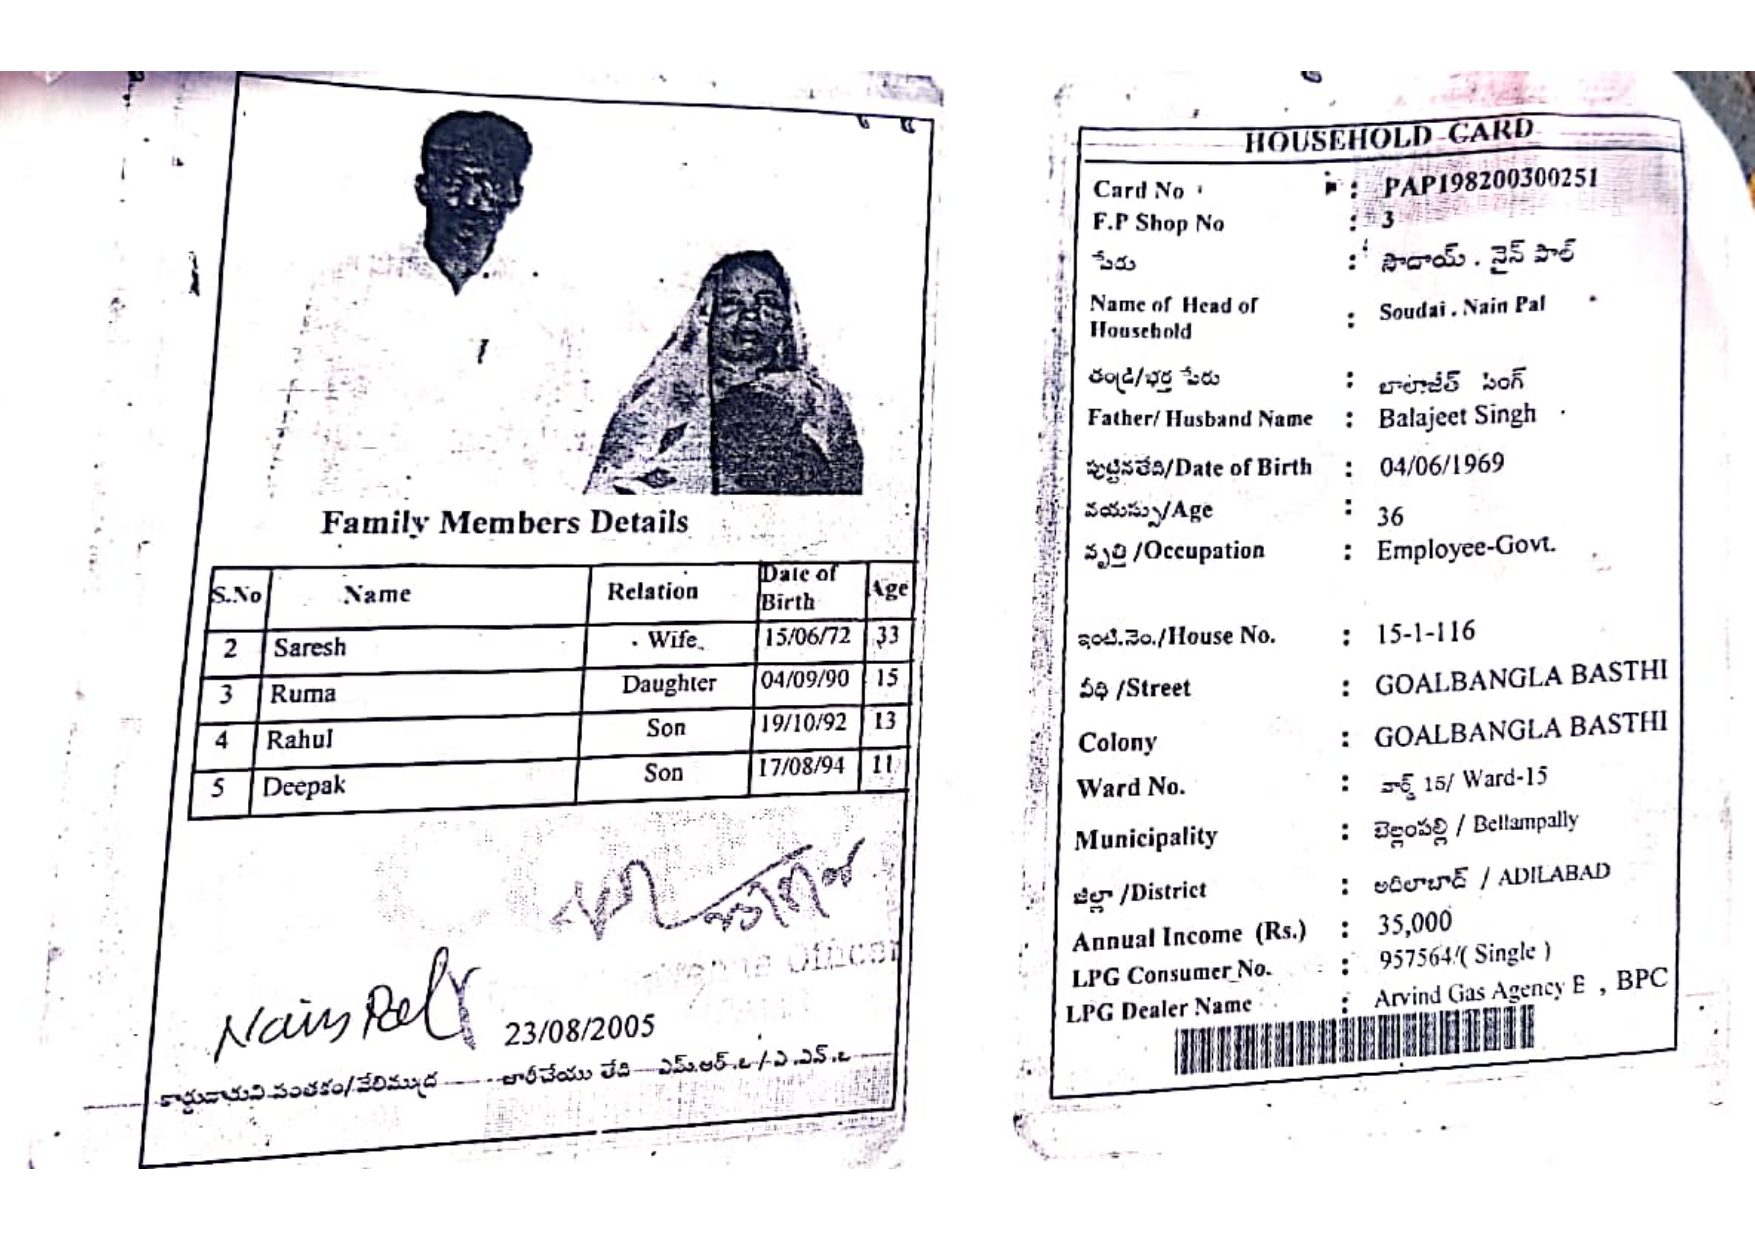 Family Members Details
S.No Name Relation Date of Birth Age
2 Saresh Wife 15/06/72 33
3 Ruma Daughter 04/09/90 15
4 Rahul Son 19/10/92 13
5 Deepak Son 17/08/94 11
Officer
Nain Pal
23/08/2005
కార్డుదారుని సంతకం/వేలిముద్ర జారీచేయు తేది ఎమ్.ఆర్.ఒ/ఎ.ఎస్.ఒ
HOUSEHOLD CARD
Card No : PAP198200300251
F.P Shop No : 3
పేరు : సౌదాయ్ . నైన్ పాల్
Name of Head of Household : Soudai . Nain Pal
తండ్రి/భర్త పేరు : బాలాజీత్ సింగ్
Father/ Husband Name : Balajeet Singh
పుట్టినతేది/Date of Birth : 04/06/1969
వయస్సు/Age : 36
వృత్తి /Occupation : Employee-Govt.
ఇంటి.నెం./House No. : 15-1-116
వీధి /Street : GOALBANGLA BASTHI
Colony : GOALBANGLA BASTHI
Ward No. : వార్డ్ 15/ Ward-15
Municipality : బెల్లంపల్లి / Bellampally
జిల్లా /District : అదిలాబాద్ / ADILABAD
Annual Income (Rs.) : 35,000
LPG Consumer No. : 957564/( Single )
LPG Dealer Name : Arvind Gas Agency B , BPC